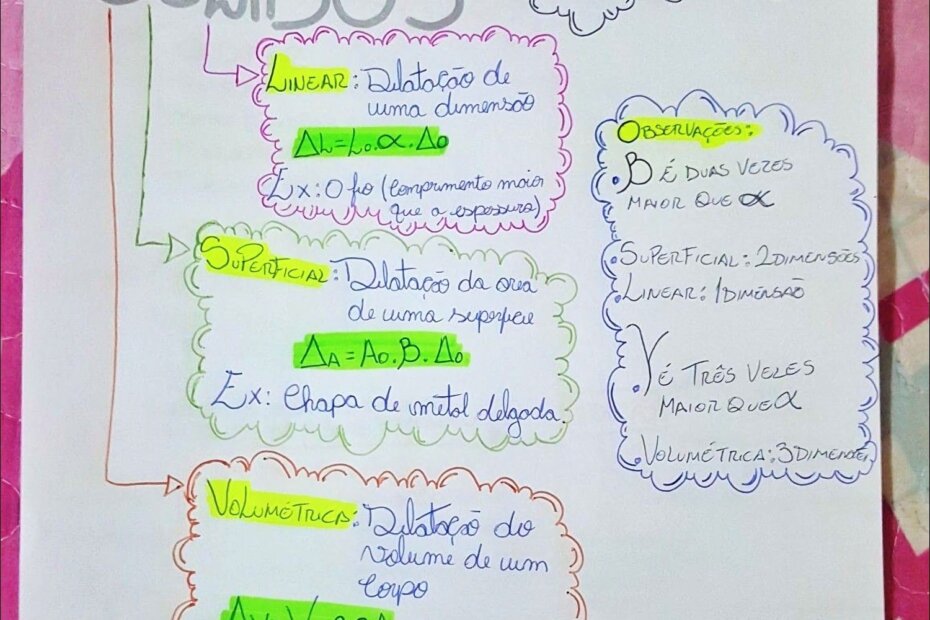 SÓLIDOS
LINEAR: Dilatação de
uma dimensão
ΔL=L₀.α.Δθ
Ex: O fio (comprimento maior
que a espessura)
SUPERFICIAL: Dilatação da área
de uma superfície
ΔA=A₀.β.Δθ
Ex: Chapa de metal delgada.
VOLUMÉTRICA: Dilatação do
volume de um
corpo
OBSERVAÇÕES:
• β É DUAS VEZES
MAIOR QUE α
• SUPERFICIAL: 2 DIMENSÕES
• LINEAR: 1 DIMENSÃO
• γ É TRÊS VEZES
MAIOR QUE α
• VOLUMÉTRICA: 3 DIMENSÕES